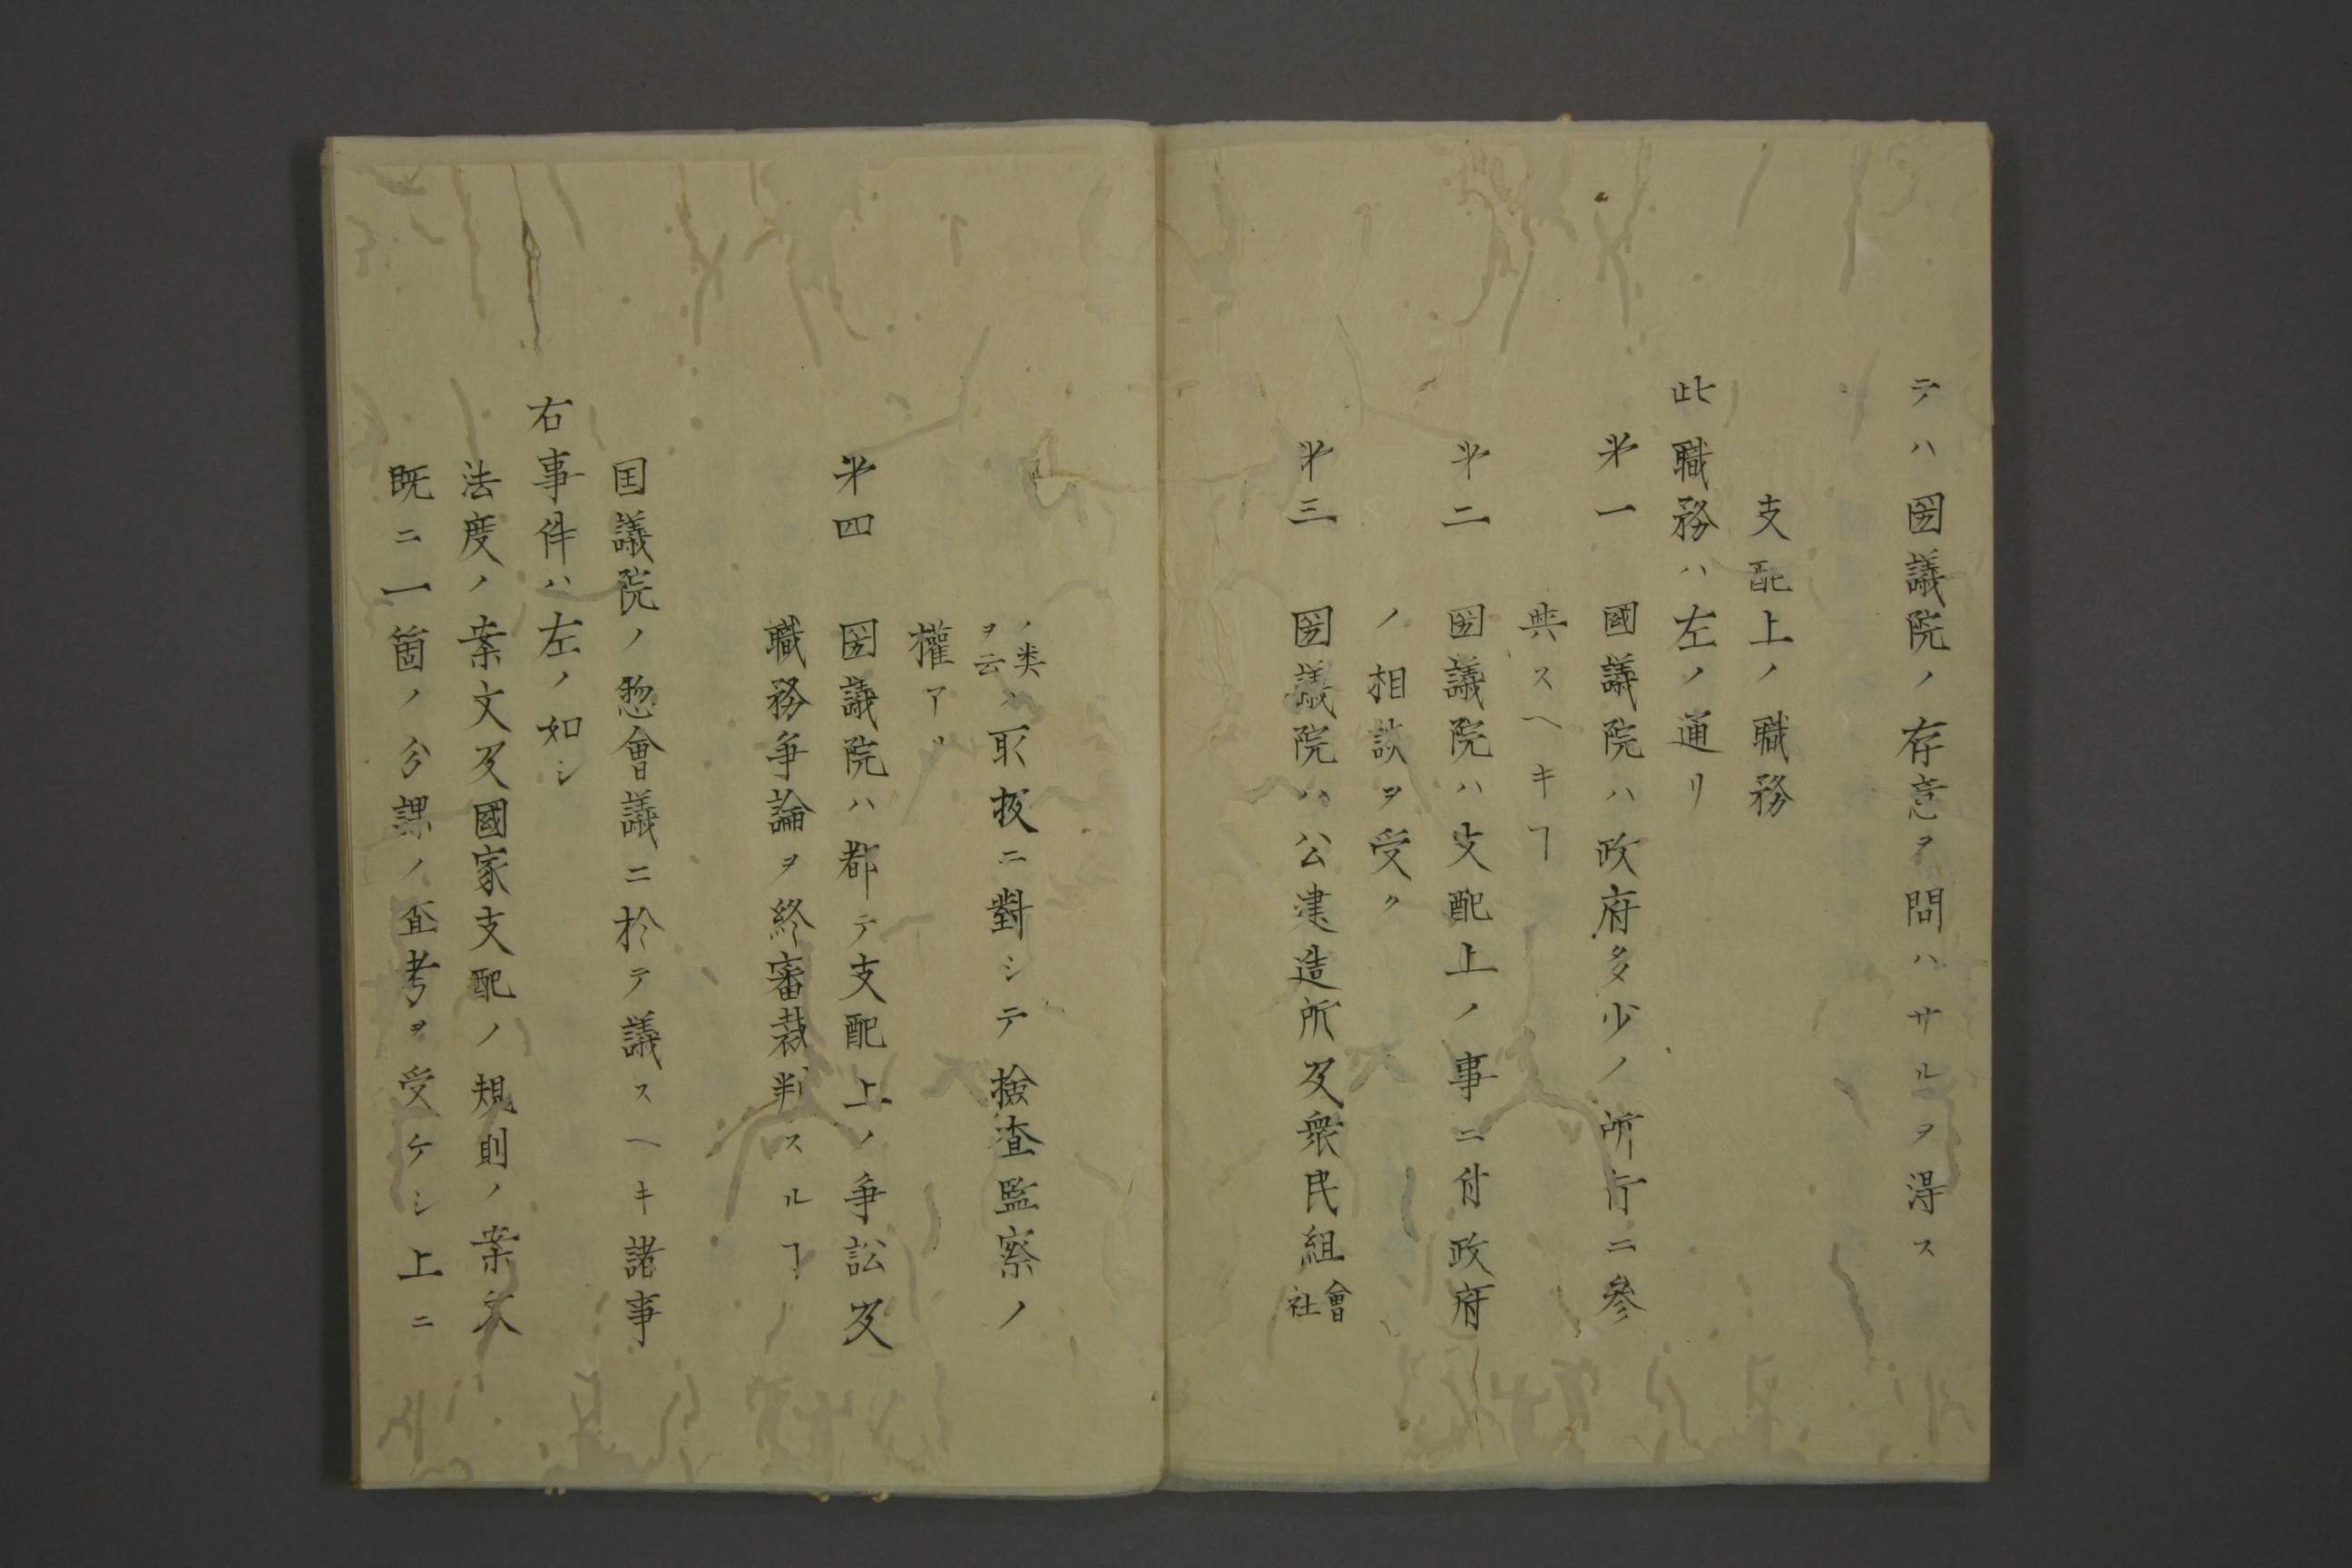 テハ囶議院ノ存意ヲ問ハサルヲ得ス
支配上ノ職務
此職務ハ左ノ通リ
㐧一　國議院ハ政府多少ノ所行ニ參
與スヘキヿ
㐧二　囶議院ハ支配上ノ事ニ付政府
ノ相談ヲ受ク
㐧三　囶議院ハ公建造所及衆民組會社
ノ类ヲ云ノ取扱ニ對シテ撿査監察ノ
權アリ
㐧四　囶議院ハ都テ支配上ノ爭訟及
職務爭論ヲ終審裁判スルヿ
囯議院ノ惣會議ニ於テ議スヘキ諸事
右事件ハ左ノ如シ
法度ノ案文及國家支配ノ規則ノ案文
既ニ一箇ノ分課ノ査考ヲ受ケシ上ニ